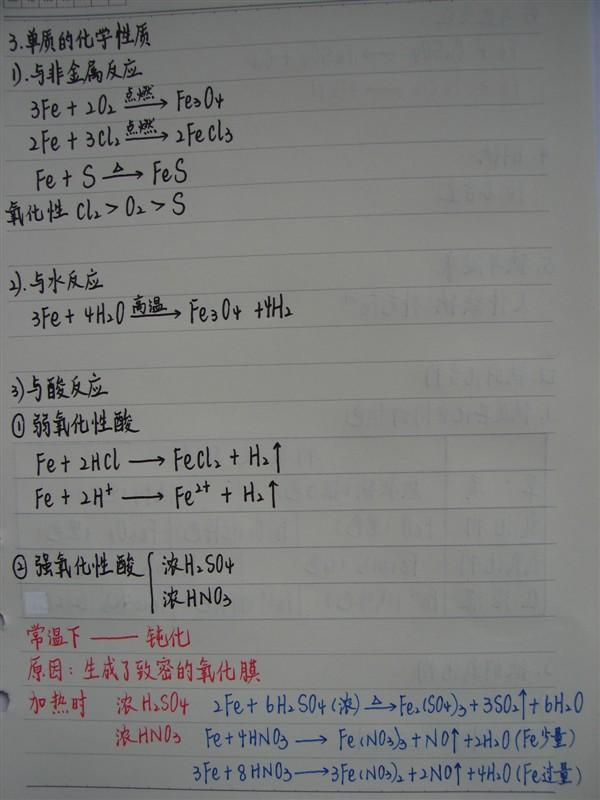 3.单质的化学性质
1).与非金属反应
3Fe + 2O₂ —点燃→ Fe₃O₄
2Fe + 3Cl₂ —点燃→ 2FeCl₃
Fe + S —△→ FeS
氧化性 Cl₂ > O₂ > S
2).与水反应
3Fe + 4H₂O —高温→ Fe₃O₄ +4H₂
3)与酸反应
① 弱氧化性酸
Fe + 2HCl ⟶ FeCl₂ + H₂↑
Fe + 2H⁺ ⟶ Fe²⁺ + H₂↑
② 强氧化性酸 { 浓H₂SO₄
浓HNO₃
常温下 —— 钝化
原因：生成了致密的氧化膜
加热时 浓H₂SO₄ 2Fe + 6H₂SO₄(浓) —△→ Fe₂(SO₄)₃ + 3SO₂↑ + 6H₂O
浓HNO₃ Fe + 4HNO₃ ⟶ Fe(NO₃)₃ + NO↑ + 2H₂O (Fe少量)
3Fe + 8HNO₃ ⟶ 3Fe(NO₃)₂ + 2NO↑ + 4H₂O (Fe过量)